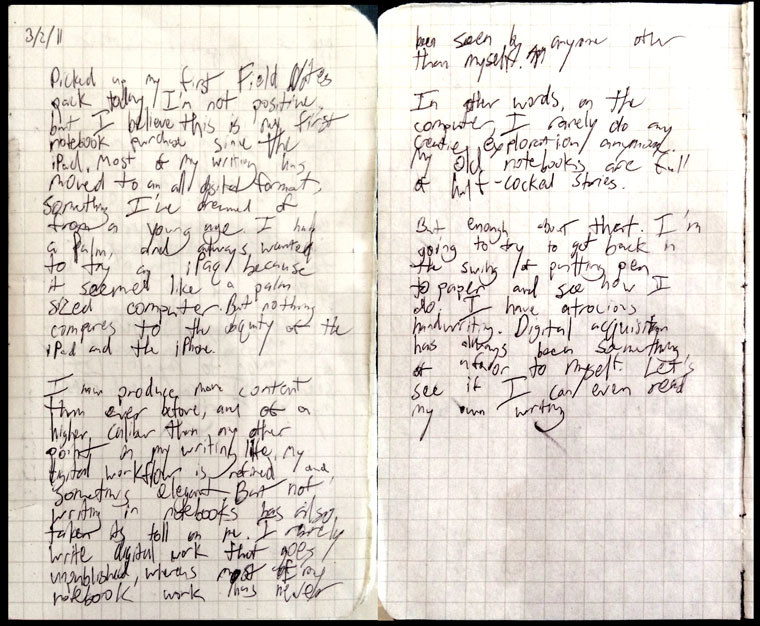 3/2/11
Picked up my first Field Notes
pack today, I'm not positive,
but I believe this is my first
notebook purchase since the
iPad. Most of my writing has
moved to an all digital format,
something I've dreamed of
from a young age. I had
a Palm, and always wanted
to try an iPaq because
it seemed like a palm
sized computer. But nothing
compares to the ubiquity of the
iPad and the iPhone.
I now produce more content
than ever before, and of a
higher caliber than my other
point in my writing life. My
digital workflow is refined and,
sometimes elegant. But not
writing in notebooks has also
taken its toll on me. I rarely
write digital work that goes
unpublished, whereas most of my
notebook work has never
been seen by anyone other
than myself.
In other words, on the
computer, I rarely do any
creative exploration anymore.
My old notebooks are full
of half-cocked stories.
But enough about that. I'm
going to try to get back in
the swing of putting pen
to paper and see how I
do. I have atrocious
handwriting. Digital acquisition
has always been something
of a favor to myself. Let's
see if I can even read
my own writing